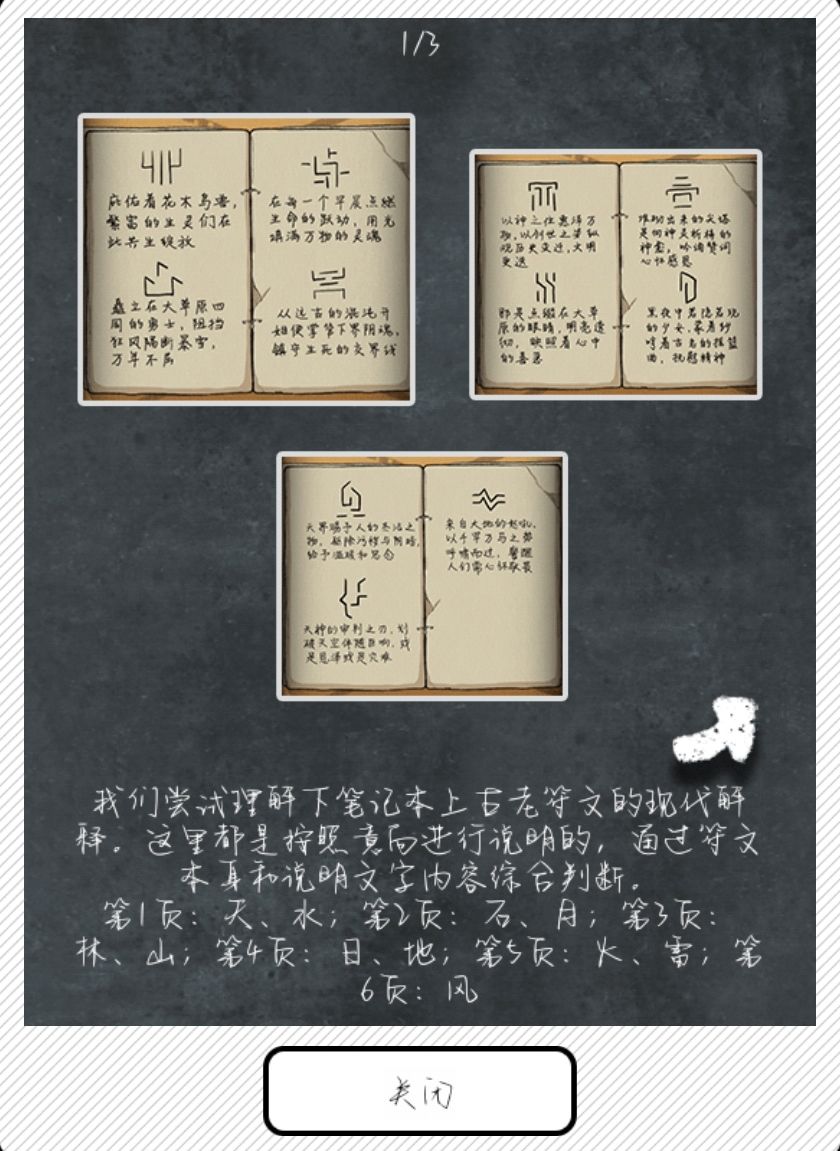 1/3
庇佑着花木鸟兽,
繁富的生灵们在
此共生绽放
矗立在大草原四
周的勇士,阻挡
狂风隔断暴雪,
万年不居
在每一个早晨点燃
生命的跃动,用光
填满万物的灵魂
从远古的混沌开
始便掌管下界阴魂,
镇守生死的交界线
以神之住惠泽万
物,以创世之荣纵
观历史变迁,文明
更迭
那是点缀在大草
原的眼睛,明亮透
彻,映照着心中
的喜忌
堆砌出来的尖塔
是向神灵祈祷的
神龛,吟诵赞词
心怀感恩
黑夜中若隐若现
的少女,蒙着纱
哼着古老的摇篮
曲,抚慰精神
天界赐予人的圣洁之
物,驱除污秽与阴暗,
给予温暖和思念
天神的审判之刃,划
破天空伴随巨响,或
是恩泽或是灾难
来自大地的怒吼,
以千军万马之势
呼啸而过,警醒
人们常心怀敬畏
我们尝试理解下笔记本上古老符文的现代解
释。这里都是按照意向进行说明的,通过符文
本身和说明文字内容综合判断。
第1页:天、水;第2页:石、月;第3页:
林、山;第4页:日、地;第5页:火、雷;第
6页:风
关闭